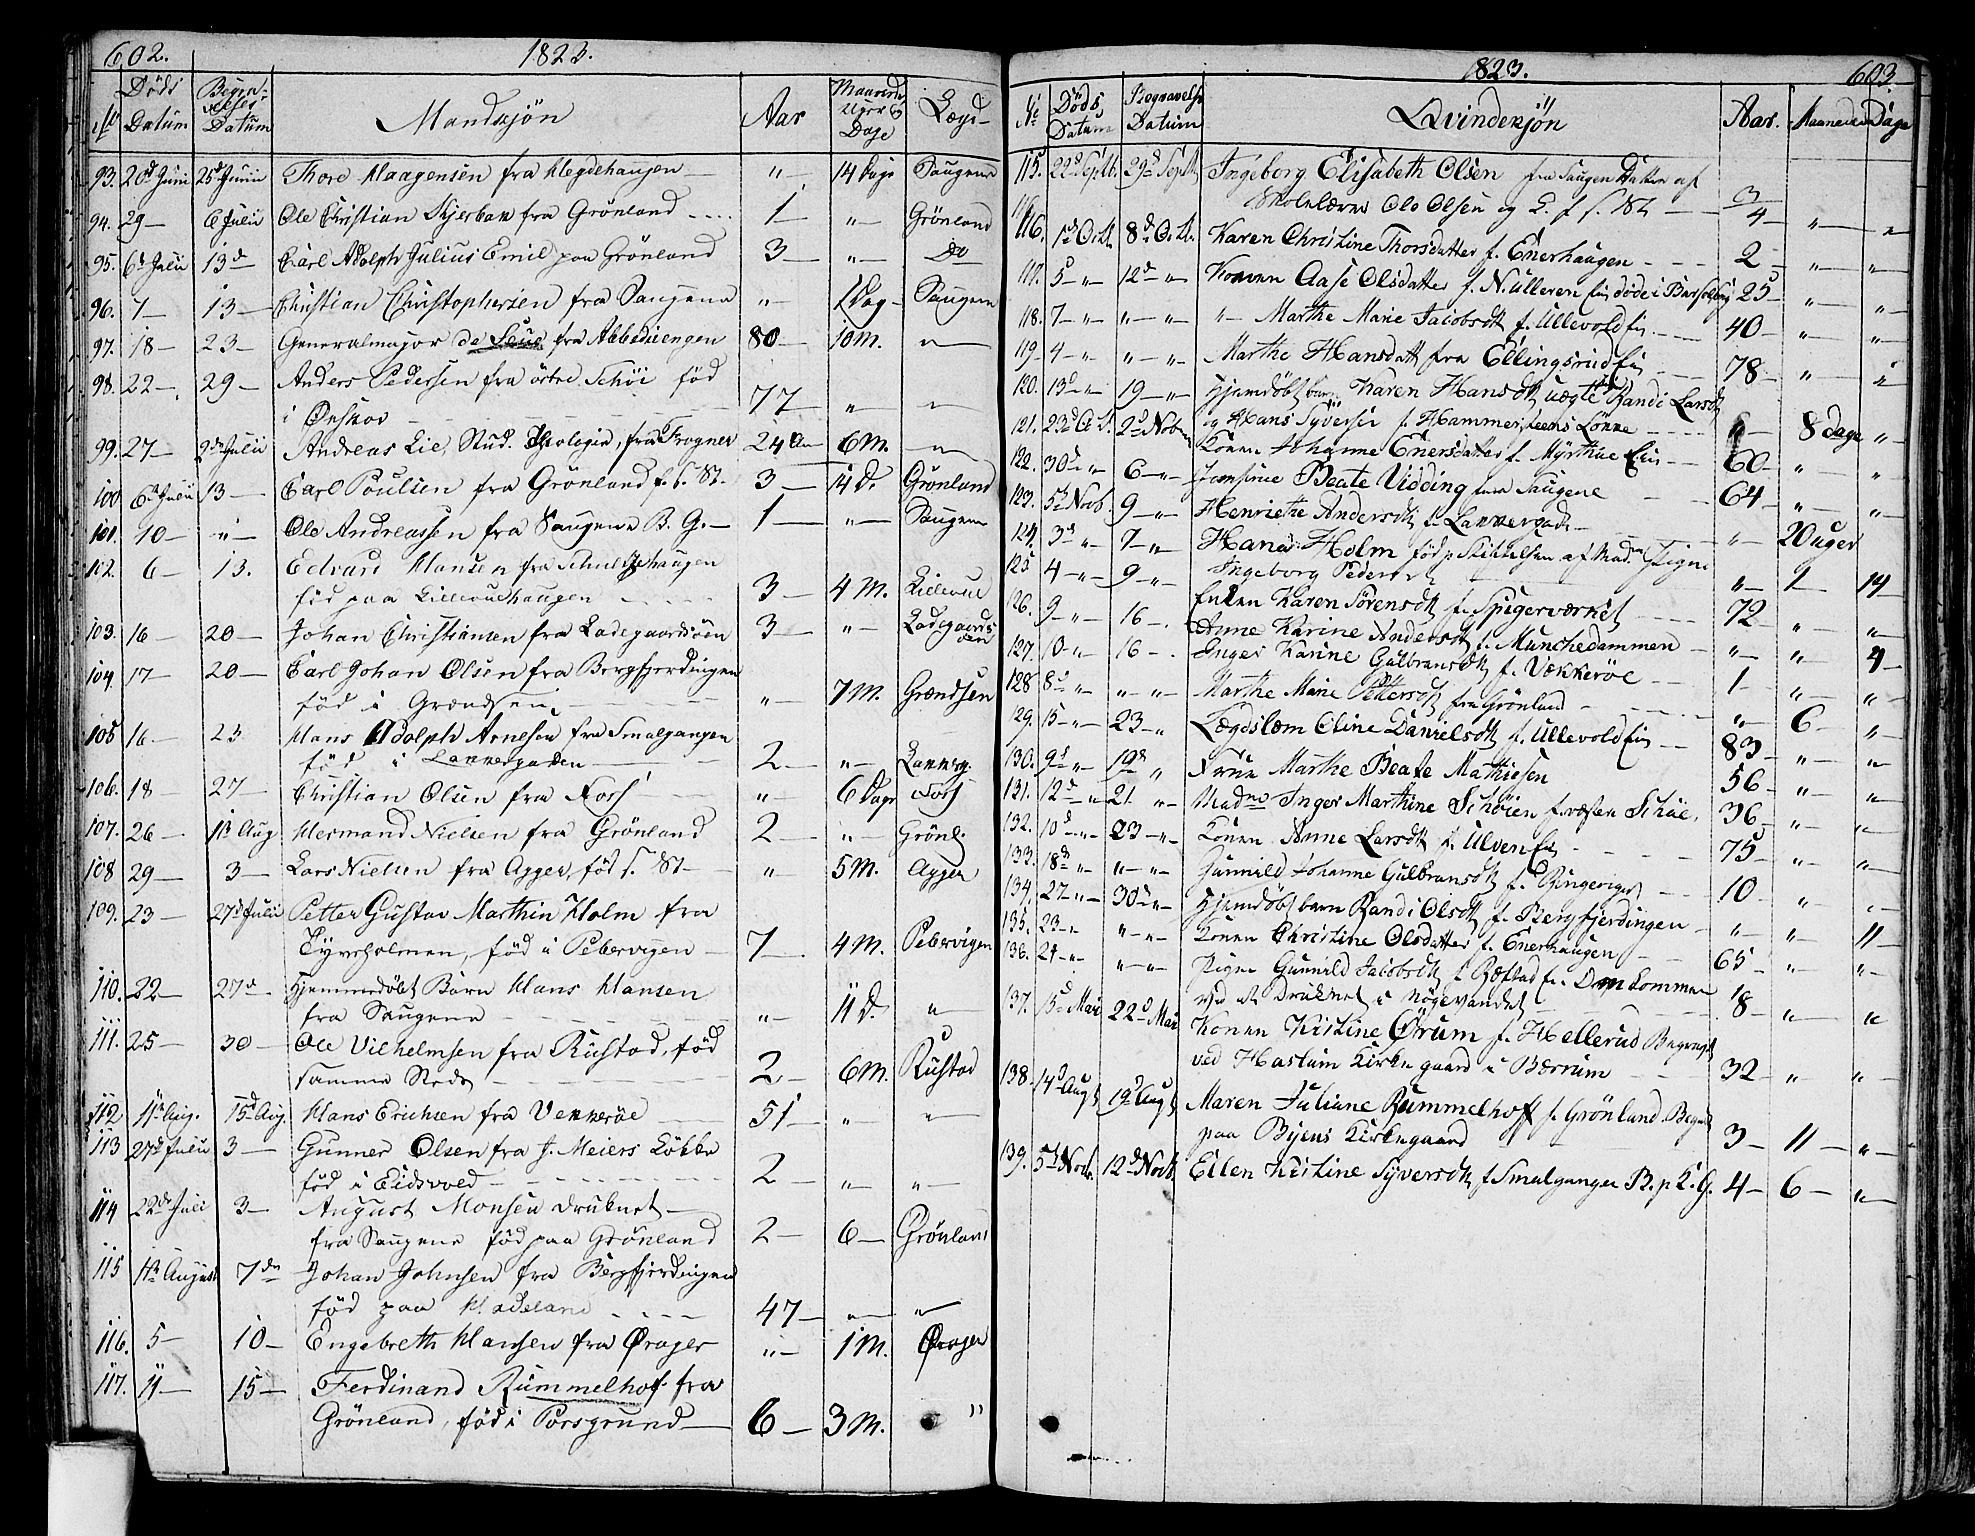 602.
1823.
№ Döds Datum Begravelses Datum Mandkjön Aar Maaneder Uger & Dage Lægd
93. 20d Juni 25d Junii Thore Haagensen fra Hegdehaugen " 14 Dage Saugene
94. 29 6 Julii Ole Christian Skjerbak fra Grönland 1 " Grönland
95. 6d Julii 13d Carl Adolph Julius Emil paa Grönland 3 " Do
96. 7 13 Christian Christophersen fra Saugene " 1 Dag Saugene
97. 18 23 Generalmajor de Seue fra Abbediengen 80 10 M. "
98. 22 29 Anders Pedersen fra östre Schöi föd
i Ørskov 77 " "
99. 27 2d Julii Andreas Lie, Stud. Theologie, fra Frogner 24 Aar 6 M. "
100 6d Julii 13 Carl Poulsen fra Grönland f. s. St. 3 14 D. Grönland
101. 10 " Ole Andreassen fra Saugene B. G. 1 " Saugene
102. 6 13. Edvard Hansen fra Schultzehaugen
föd paa Lillevudhaugen 3 4 M. Lillevud
103. 16 20 Johan Christiansen fra Ladegaardsöen 3 " Ladegaardsöen
104 17 20 Carl Johan Olsen fra Bergfjerdingen
föd i Grændsen " 7 M. Grændsen
105 16 23 Hans Adolph Arnesen fra Smalgangen
föd i Lakkegaden 2 " Lakkeg.
106. 18 27 Christian Olsen fra Fors " 6 Dage Fors
107. 26 11t Aug Hermand Nielsen fra Grönland 2 " Grönl.
108 29 3 Lars Nielsen fra Agger, föd s. St " 5 M. Agger
109. 23 27d Juli Petter Gustav Marthin Holm fra
Tyveholmen, föd i Pebervigen 7 4 M. Pebervigen
110. 22 27d Hjemmedöbt Barn Hans Hansen
fra Saugene " 11 D. "
111. 25 30 Ole Vilhelmsen fra Rustad, föd
samme Steds 2 6 M. Rustad
112 11t Aug. 15d Aug. Hans Erichsen fra Vekkeröe 51 " "
113 27d Julii 3 Gunner Olsen fra J. Meiers Løkke
föd i Eidsvold 2 " "
114 22de Juli 3 August Monsen druknet
fra Saugene föd paa Grönland 2 6 Grönland
115 1te August 7de Johan Johnsen fra Bergfjerdingen
föd paa Hadeland 47 " "
116. 5 10 Engebreth Hansen fra Ørager " 1 M. Ørager
117. 11 15 Ferdinand Rummelhof fra
Grönland, föd i Porsgrund 6 3 M. "
1823.
603.
№ Döds Datum Begravelse Datum Qvindekjön Aar. Maaneder Dage
115. 22d Septb. 29d Septb Ingeborg Elisabeth Olsen fra Saugen Datter af
Skolelærer Ole Olsen og K. f. s. St 3/4 " "
116. 1d Octb. 8d Octb. Karen Christine Thorsdatter f. Enerhaugen 2 " "
117. 5 " 12d " Konen Aase Olsdatter f. N. Ulleren Eie døde i Barselseng 25 " "
118. 7 " " " " Marthe Marie Jacobsdtr f. Ullevold Eie 40 " "
119 4 " " " Marthe Hansdatt fra Ellingsrud Eie 78 " "
120. 13d " 19 " Hjemdöbt barn Karen Hansdtr uægte Randi Larsdtr
og Hans Syversen f. Hammersteens Lökke " 8 dage "
121. 23d Oct. 2d Nobr Konen Johanne Enersdatter f. Myrhue Eie 60 " "
122. 30d " 6 " Jomfrue Beate Vidding fra Saugene 64 " "
123. 5t Nob. 9 " Henriette Andersdtr f. Lakkegade " 20 uger
124. 3d " 7 " Hana Holm föd p Stiftelsen af Mad.
Ingeborg Peders " 1 14
125 4 " 9 " Enken Karen Sörensdtr f. Spigerværket 72 " "
126. 9 " 16 Anne Karine Andersdtr f. Munchedammen " " 4
127. 10 " 16 Inger Karine Gulbransdtr f. Vækkeröe 1 " "
128 8d " " " Marthe Marie Pettersdtr fra Grönland " 6 "
129. 15 " 23 " Lægdslem Eline Danielsdtr f. Ullevold Eie 83 " "
130. 9d " 19d " Fruen Marthe Beate Mathiesen 56 " "
131. 12d " 21 " Madme Inger Marthine Schöien f. vesten Schöie 36 " "
132. 10d " 23 " Konen Anne Larsdtr f. Ulven Eie 75 " "
133. 18de " " " Gunnild Johanne Gulbransdtr f. Ringeriget 10 " "
134. 27 " 30d " Hjemdöbt barn Randi Olsdtr f. Bergfjerdingen " " 11
135. 23 " " " Konen Christine Olsdatter f. Enerhaugen 65 " "
136. 21 " " " Pigen Gunnild Jacobsdtr f. Refstad Eie. Omkommen
ved at Druknet i Nøgevandet 18 " "
137. 15d Mai 22d Mai Konen Kistine Ørum f. Hellerud Begravet
ved Haslum Kirkegaard i Bærum 32 " "
138. 14d Augt 19d Augt Maren Juliane Rummelhoff f. Grönland. Begr.
paa Byens Kirkegaard 3 11 "
139. 5t Nobr. 12d Novb Ellen Kistine Syversdtr f Smalgangen B. p K. G. 4 6 "